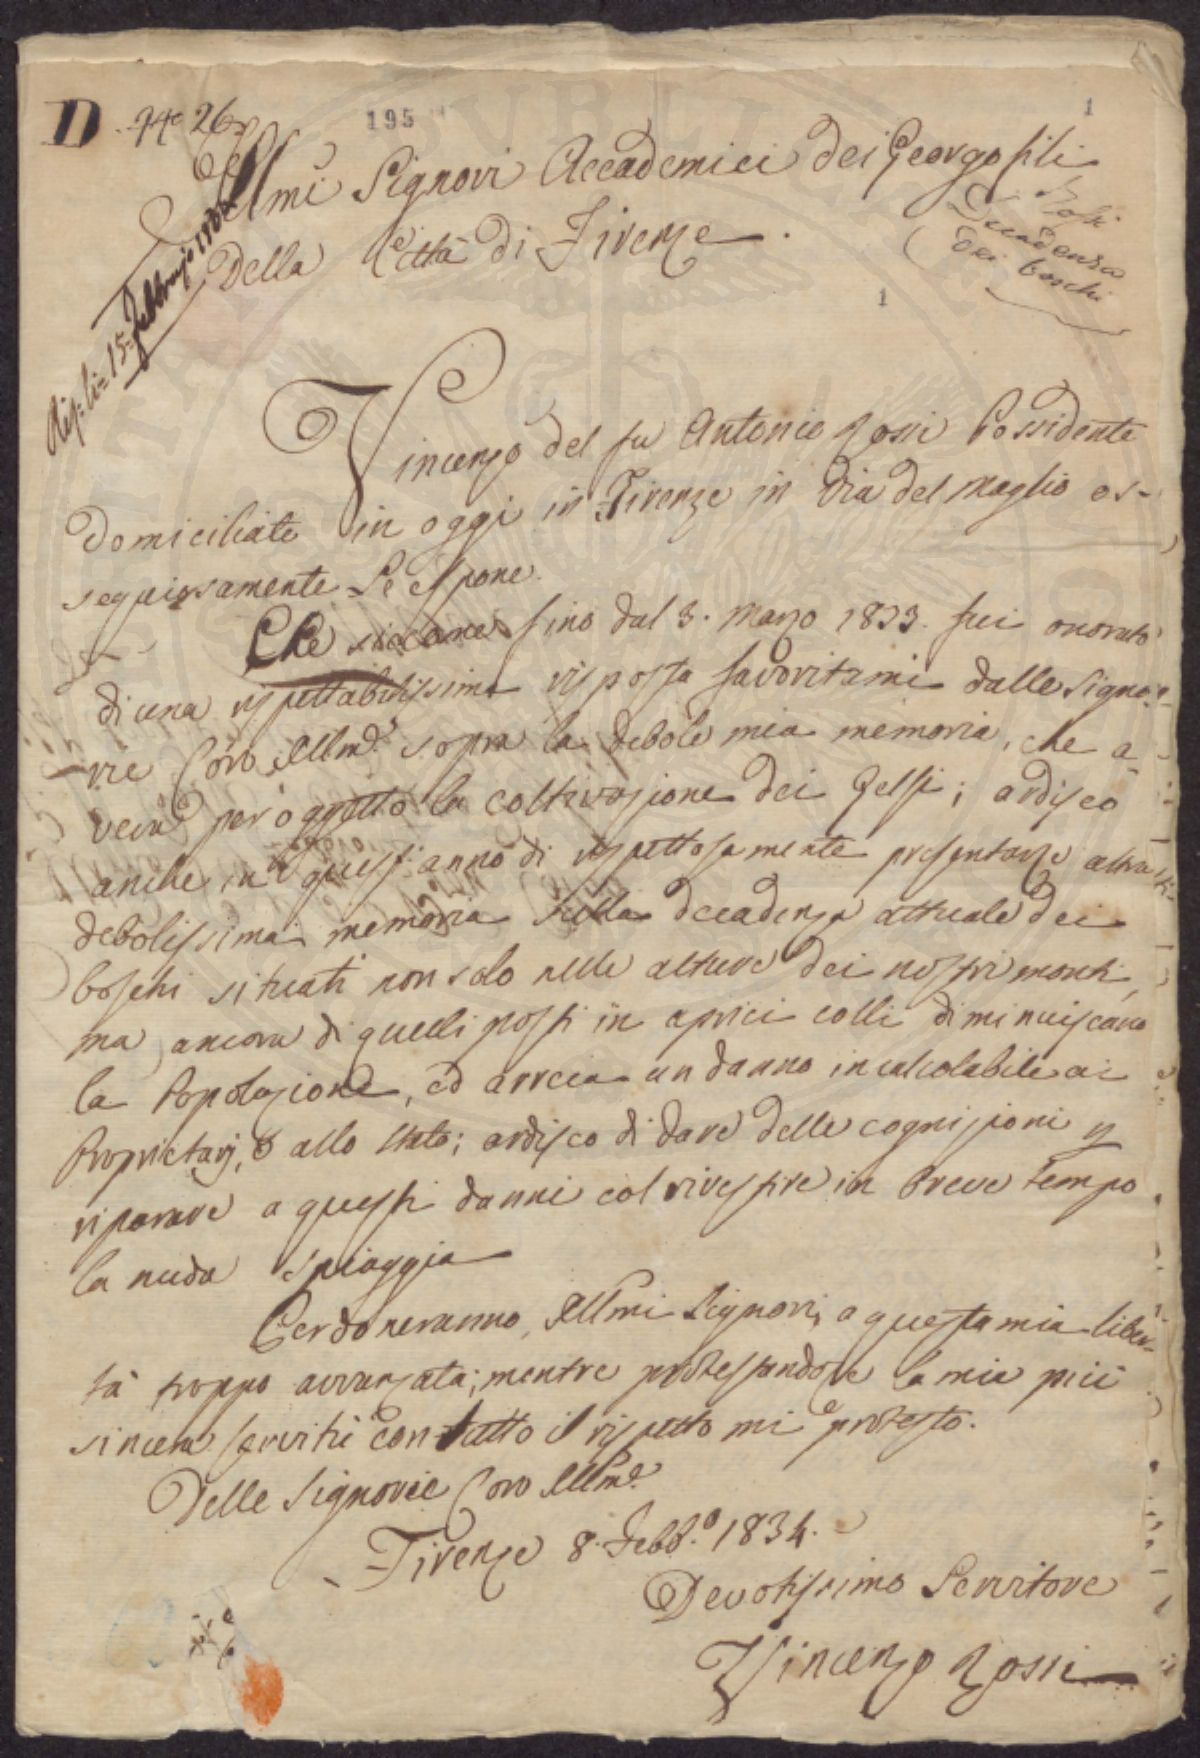 D
195
1
Illmi Signori Accademici dei Georgofili
Della Città di Firenze.
Rossi
Decadenza
dei boschi
1
Risp: li = 15 = Febbrajo
Vincenzo del fu Antonio Rossi Possidente
domiciliato in oggi in Firenze in Via del Maglio os-
sequiosamente Le espone
Che siccome fino dal 3. Marzo 1833. fui onorato
di una rispettabilissima risposta favoritami dalle Signo-
rie Loro Illme sopra la debole mia memoria, che a-
veva per oggetto la coltivazione dei Gelsi; ardisco
anche in quest'anno di rispettosamente presentarle altra
debolissima memoria sulla decadenza attuale dei
boschi situati non solo nelle alture dei nostri monti,
ma ancora di quelli posti in aprici colli diminuiscano
la Popolazione, ed arreca un danno incalcolabile ai
Proprietarj, e allo Stato; ardisco di dare delle cognizioni p
riparare a questi danni col rivestire in breve tempo
la nuda spiaggia
Perdoneranno, Illmi Signori, a questa mia liber-
tà troppo avvanzata; mentre protestandole la mia più
sincera servitù con tutto il rispetto mi protesto.
Delle Signorie Loro Illme
Firenze 8. Febb.o 1834.
Devotissimo Servitore
Vincenzo Rossi